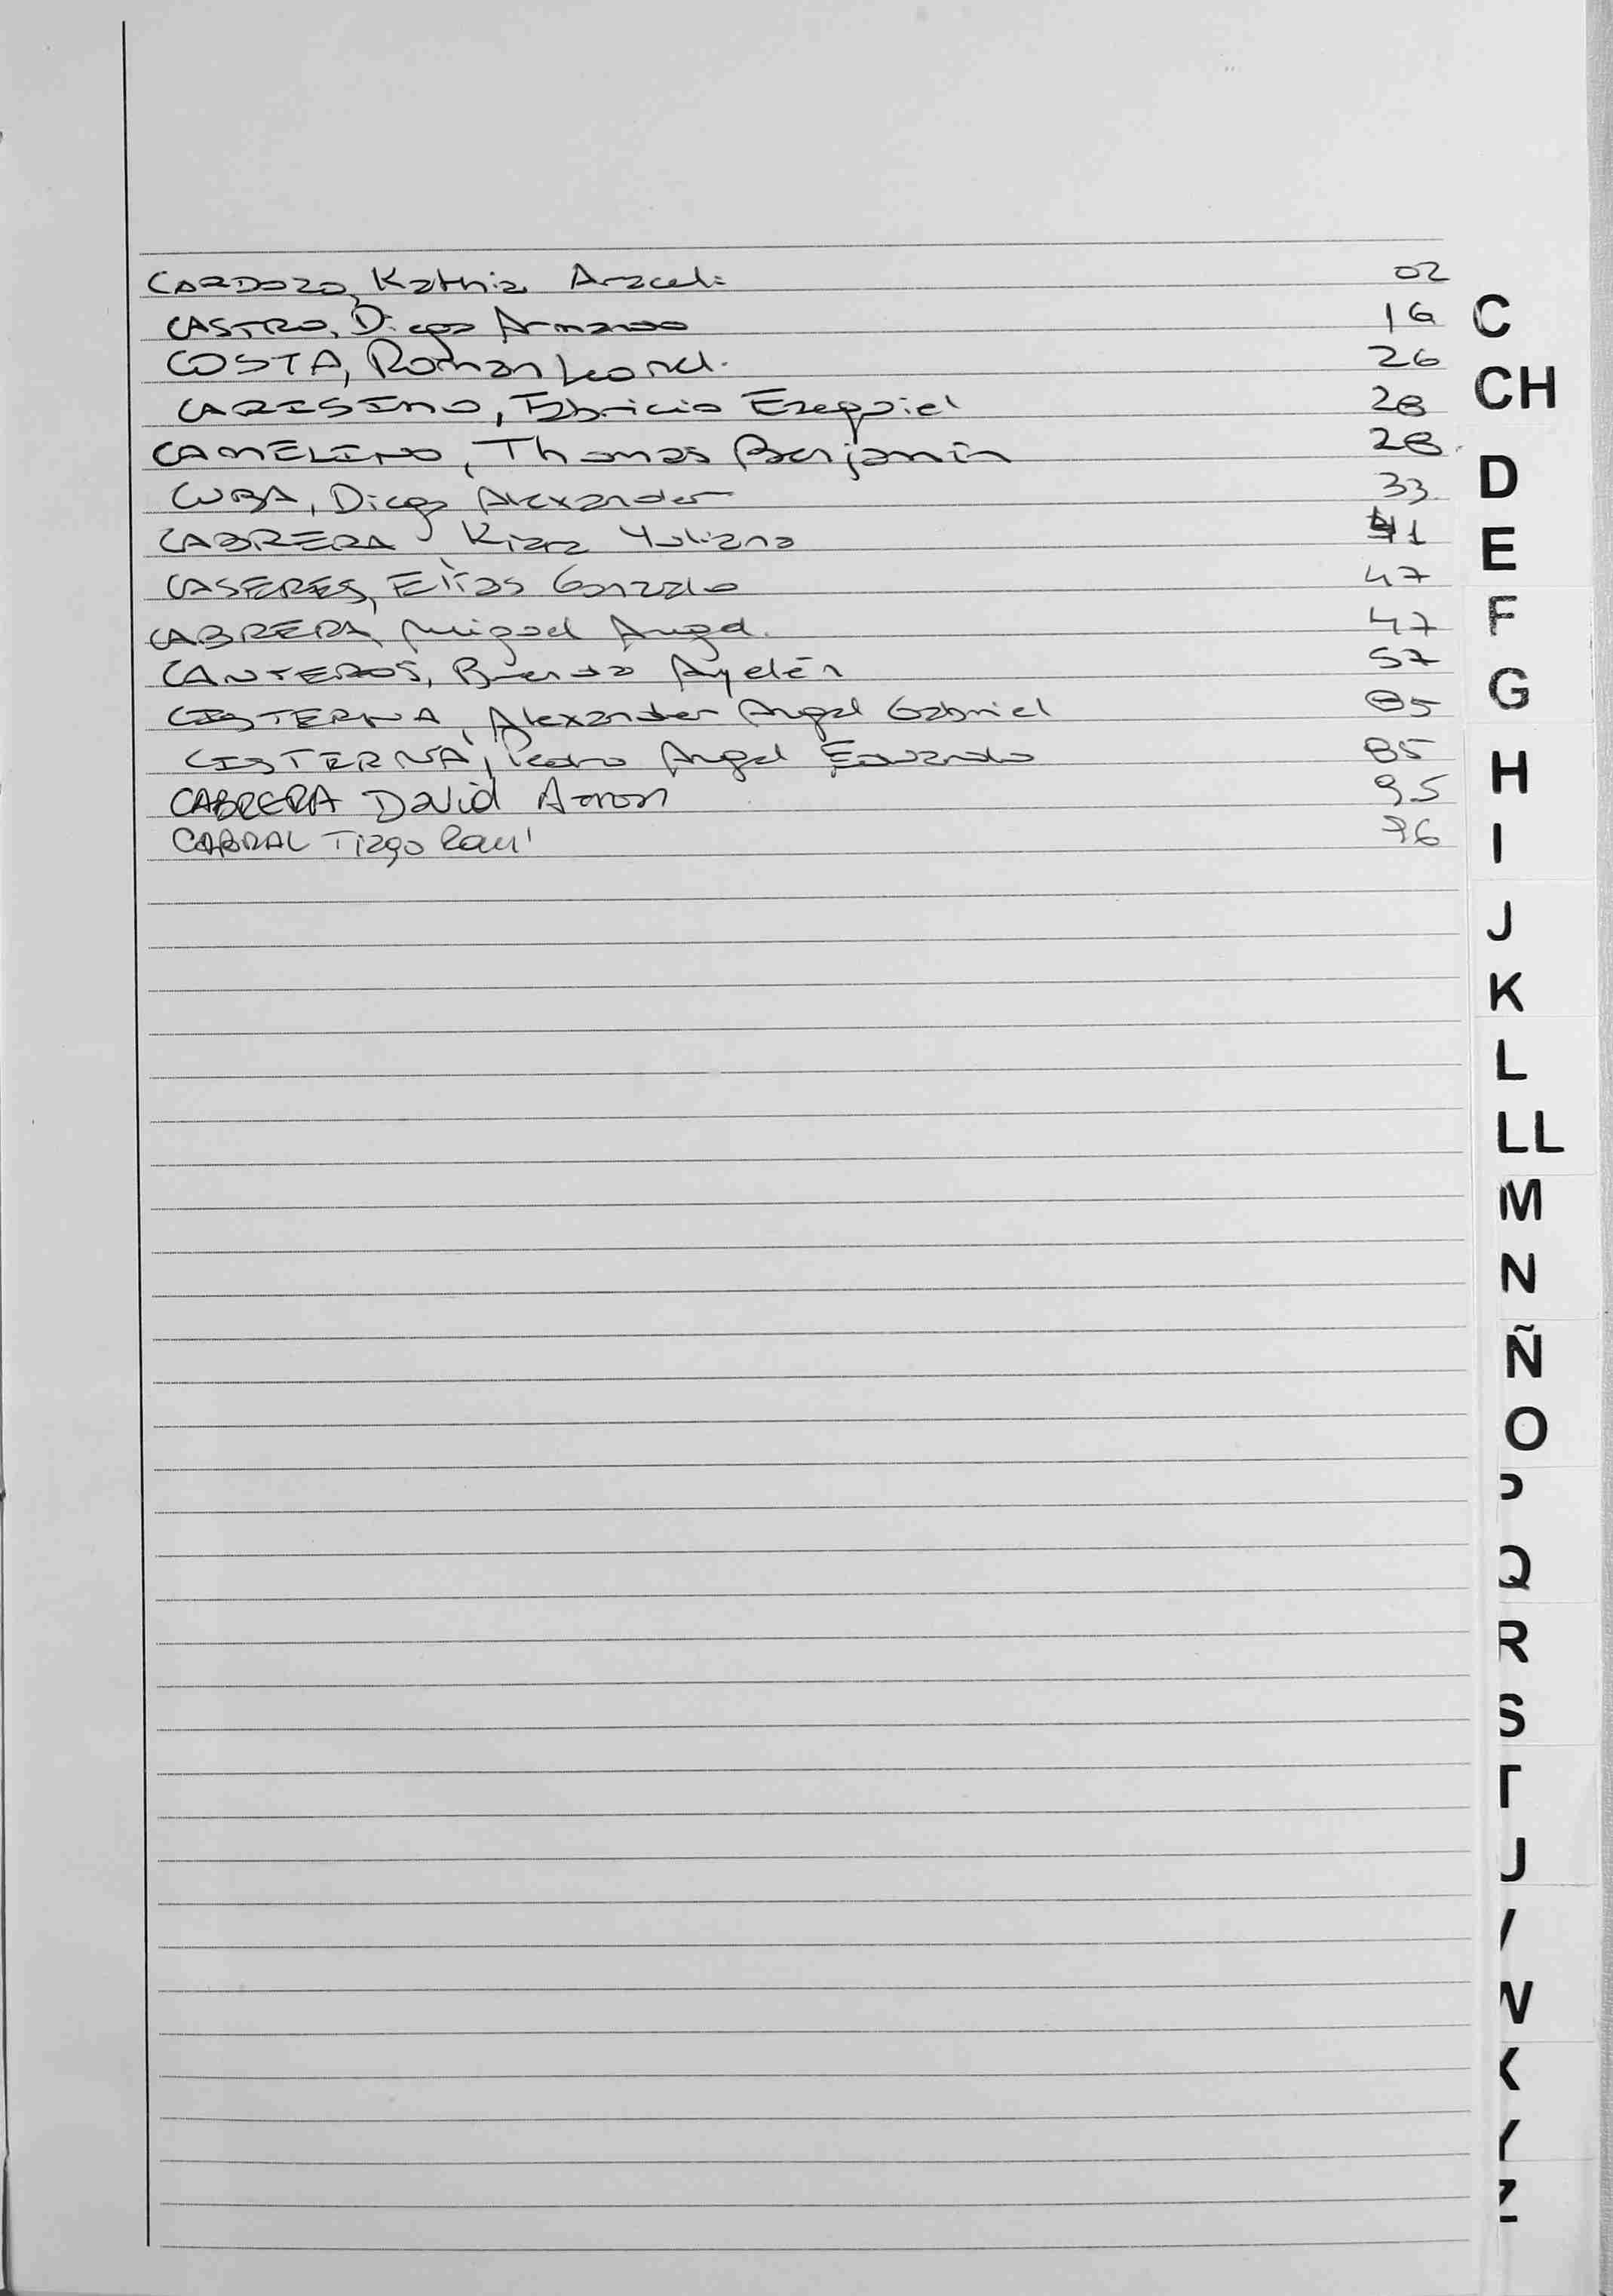 CARDOZO, Kathia Araceli 02
CASTRO, Diego Armando 16
COSTA, Roman Leonel. 26
CARISIMO, Fabricio Ezequiel 28
CAMELINO, Thomas Benjamín 28.
CUBA, Diego Alexander 33
CABRERA, Kiara Yuliana 41
CASERES, Elías Gonzalo 47
CABRERA, Miguel Angel. 47
CANTEROS, Brenda Ayelén 57
CISTERNA, Alexander Angel Gabriel 85
CISTERNA, Pedro Angel Eduardo 85
CABRERA David Aaron 95
CABRAL Tiago 96
C
CH
D
E
F
G
H
I
J
K
L
LL
M
N
Ñ
O
Q
R
S